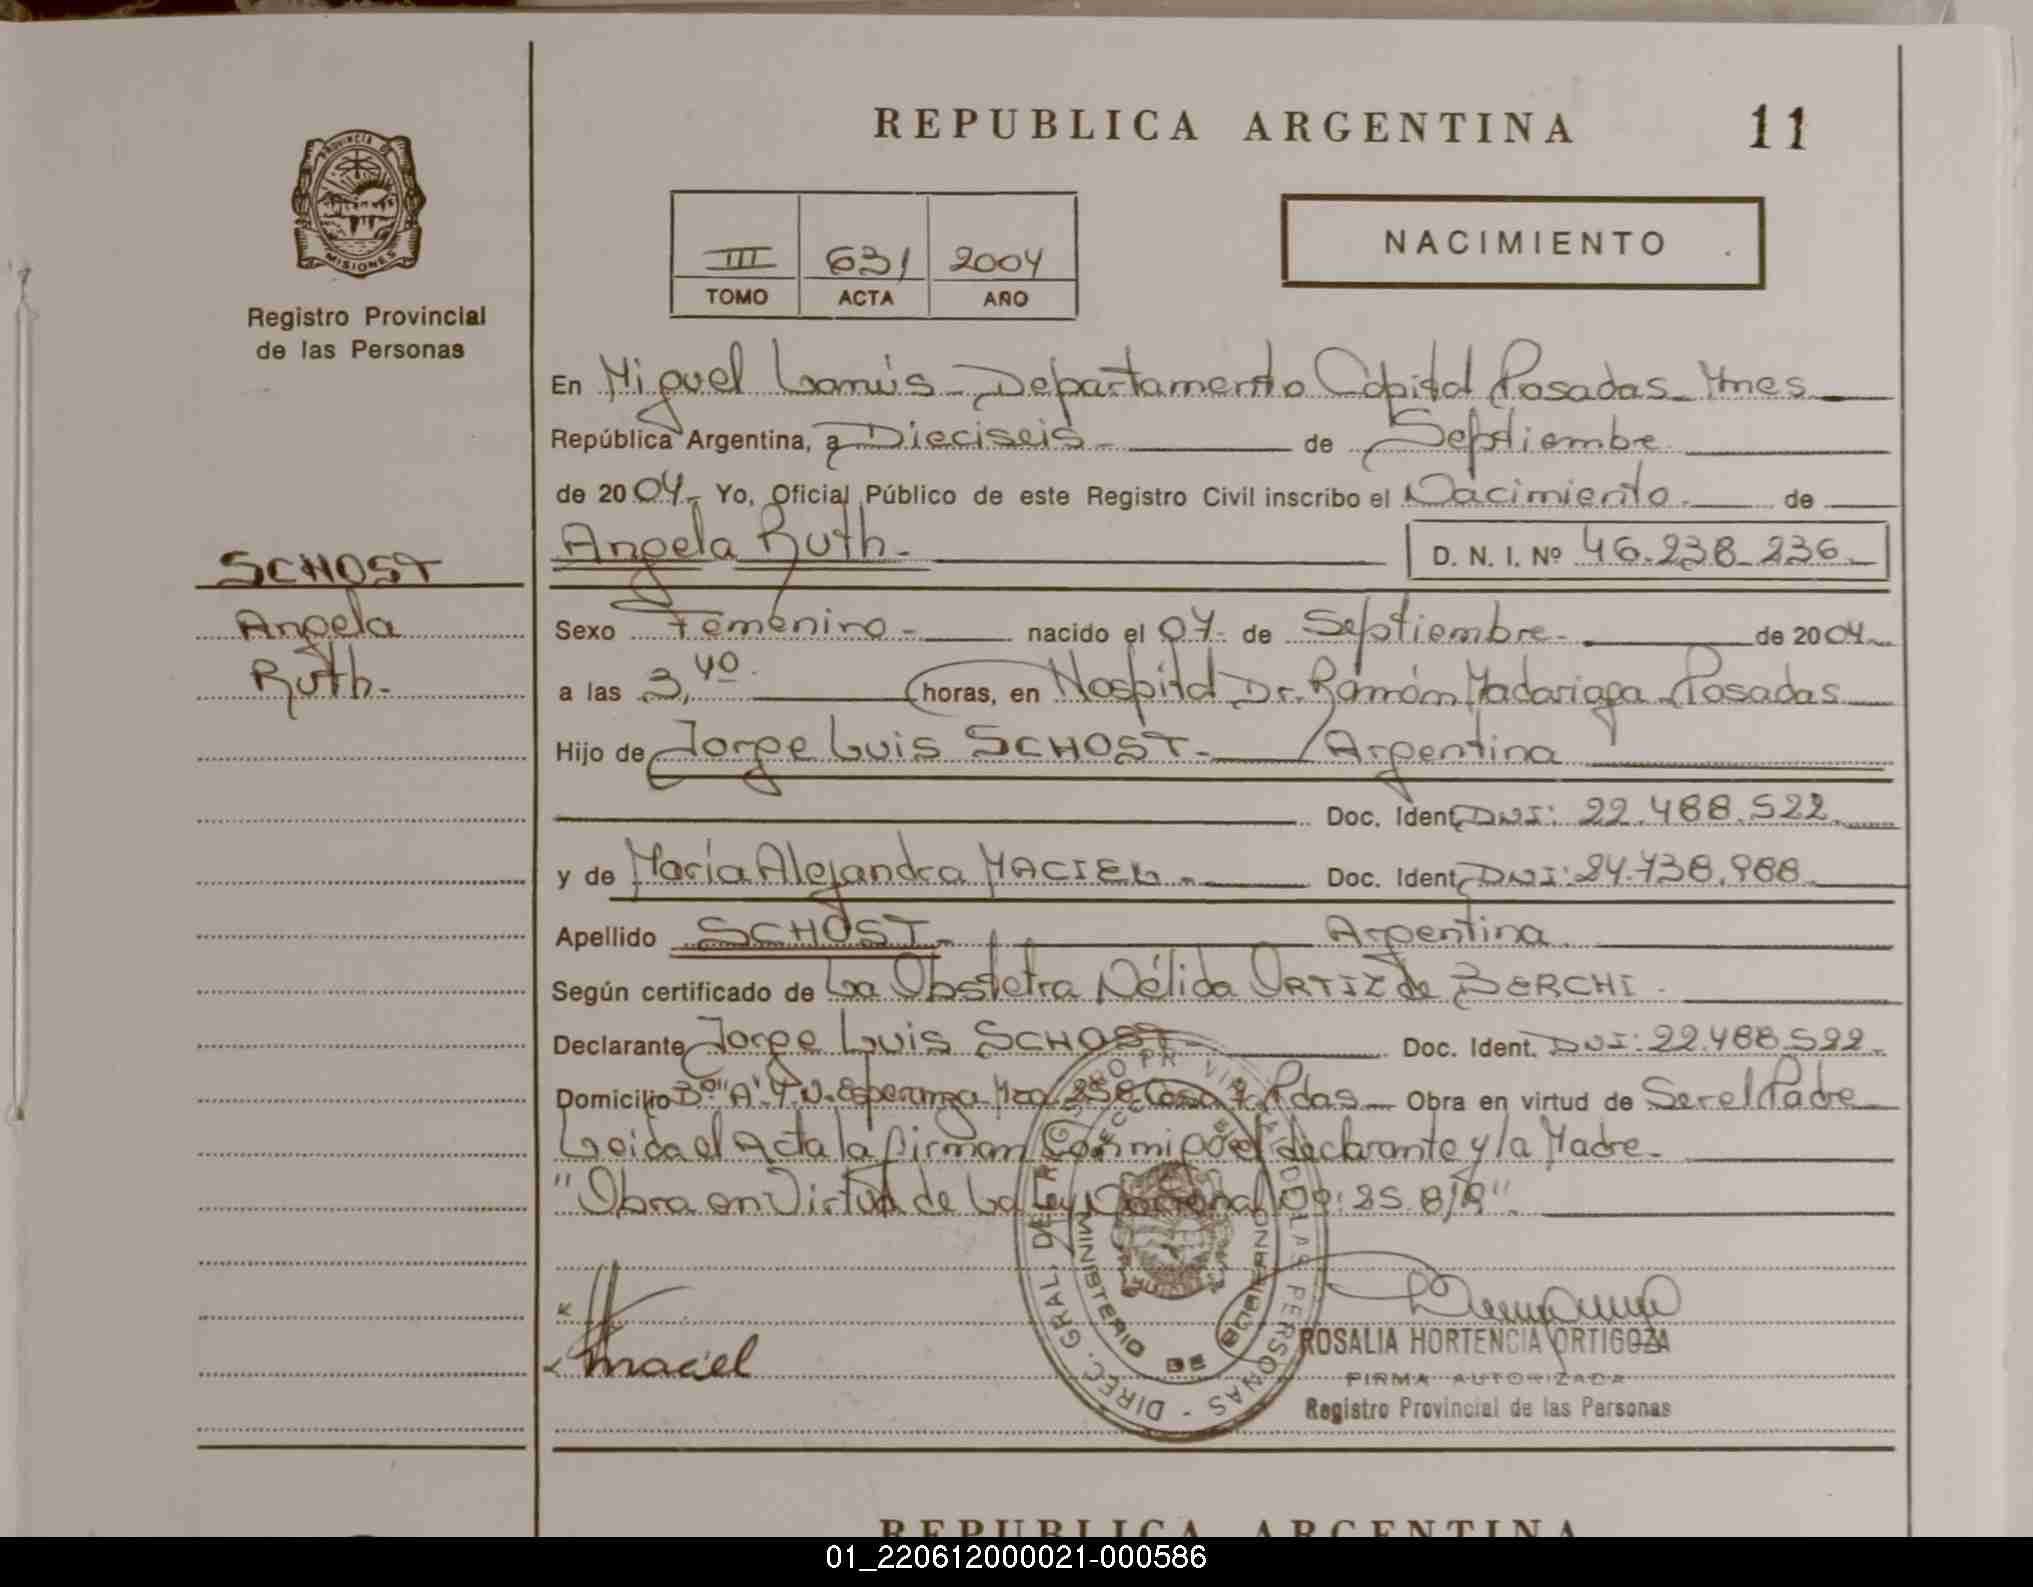 REPUBLICA ARGENTINA 11
PROVINCIA DE
MISIONES
Registro Provincial
de las Personas
III 631 2004
TOMO ACTA AÑO
NACIMIENTO
En Miguel Lanús - Departamento Capital Posadas - Mnes
República Argentina, a Dieciseis - de Septiembre
de 2004 - Yo, Oficial Público de este Registro Civil inscribo el Nacimiento - de
SCHOST
Angela Ruth -
D. N. I. Nº 46.238.236 -
Angela
Ruth -
Sexo Femenino - nacido el 07 - de Septiembre - de 2004 -
a las 3,40 - horas, en Hospital Dr. Ramón Madariaga - Posadas
Hijo de Jorge Luis SCHOST - / Argentina
Doc. Ident. DNI: 22.488.522 -
y de María Alejandra MACIEL - Doc. Ident. DNI: 24.738.988 -
Apellido SCHOST - Argentina
Según certificado de La Obstetra Nélida ORTIZ de BERCHI -
Declarante Jorge Luis SCHOST Doc. Ident. DNI: 22.488.522 -
Domicilio Bº "A" N. Esperanza Mza 258 Casa 7 Pdas - Obra en virtud de Ser el Padre
Leida el Acta la firman Conmigo el declarante y la Madre -
"Obra en Virtud de La Ley Nacional Nº: 25.819"
Maciel
DIREC. GRAL. DE REGISTRO PROVINCIAL DE LAS PERSONAS
MINISTERIO DE GOBIERNO
ROSALIA HORTENCIA ORTIGOZA
FIRMA AUTORIZADA
Registro Provincial de las Personas
REPUBLICA ARGENTINA
01_220612000021-000586